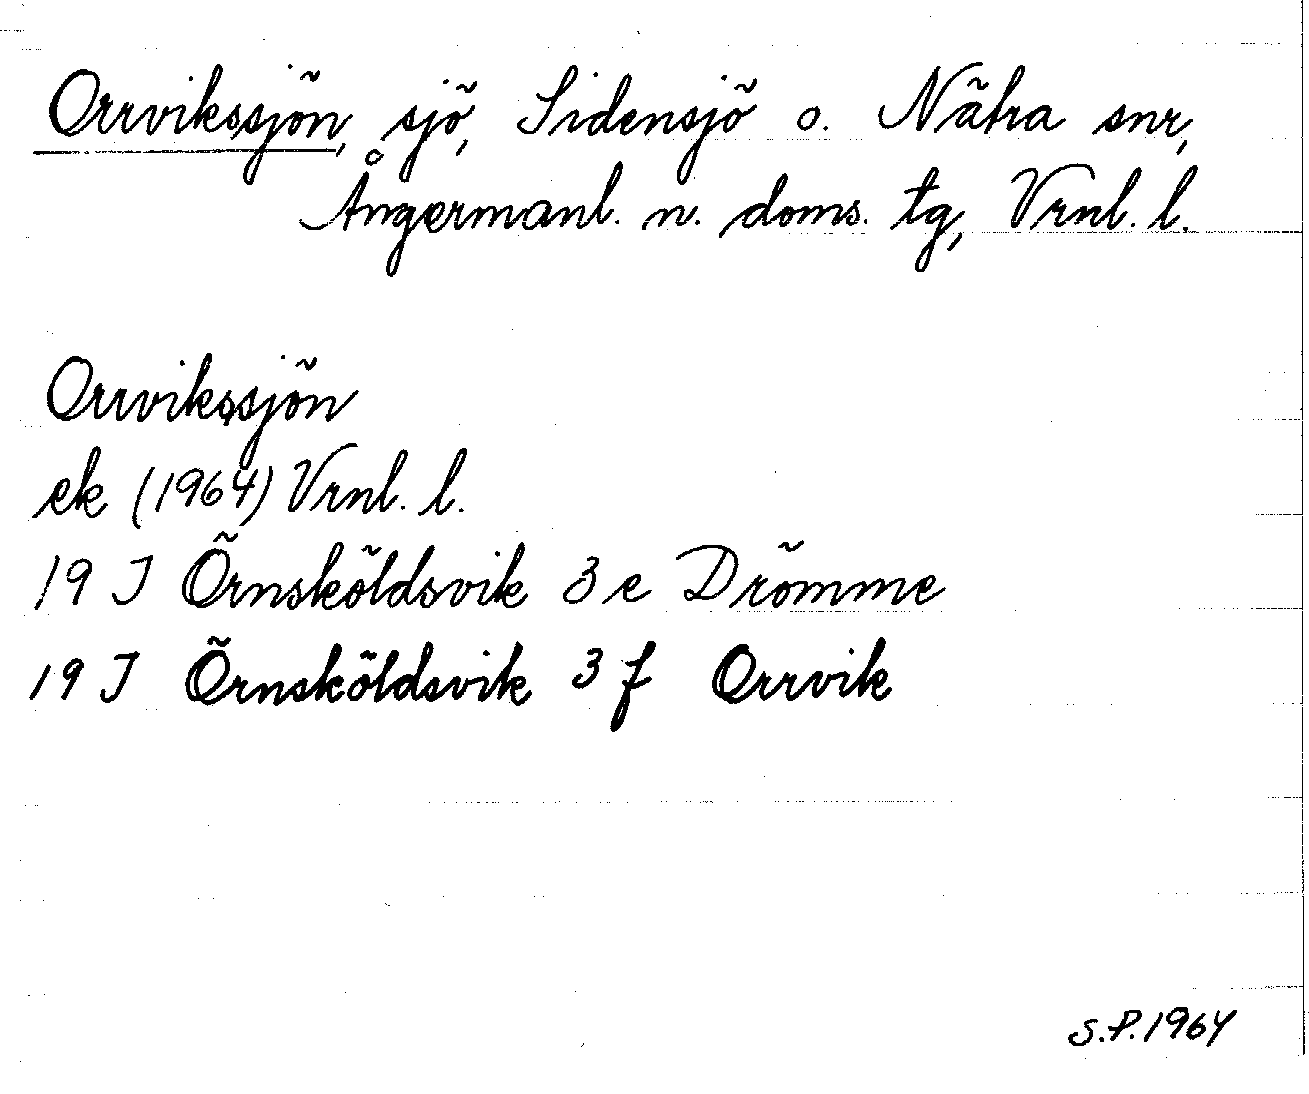 Orrvikssjön, sjö, Sidensjö o. Nätra snr,
Ångermanl. n. doms. tg, Vrnl. l.
Orrvikssjön
ek (1964) Vrnl. l.
19 J Örnsköldsvik 3 e Drömme
19 J Örnsköldsvik 3 f Orrvik
S.P. 1964